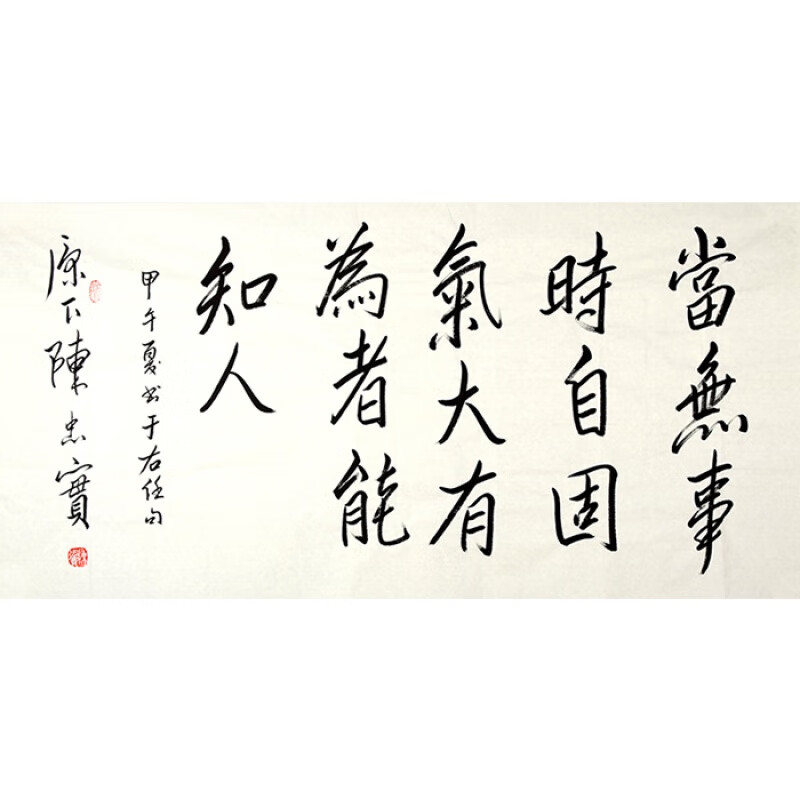 當無事
時自固
氣大有
為者能
知人
甲午夏书于右任句
原下陳忠實